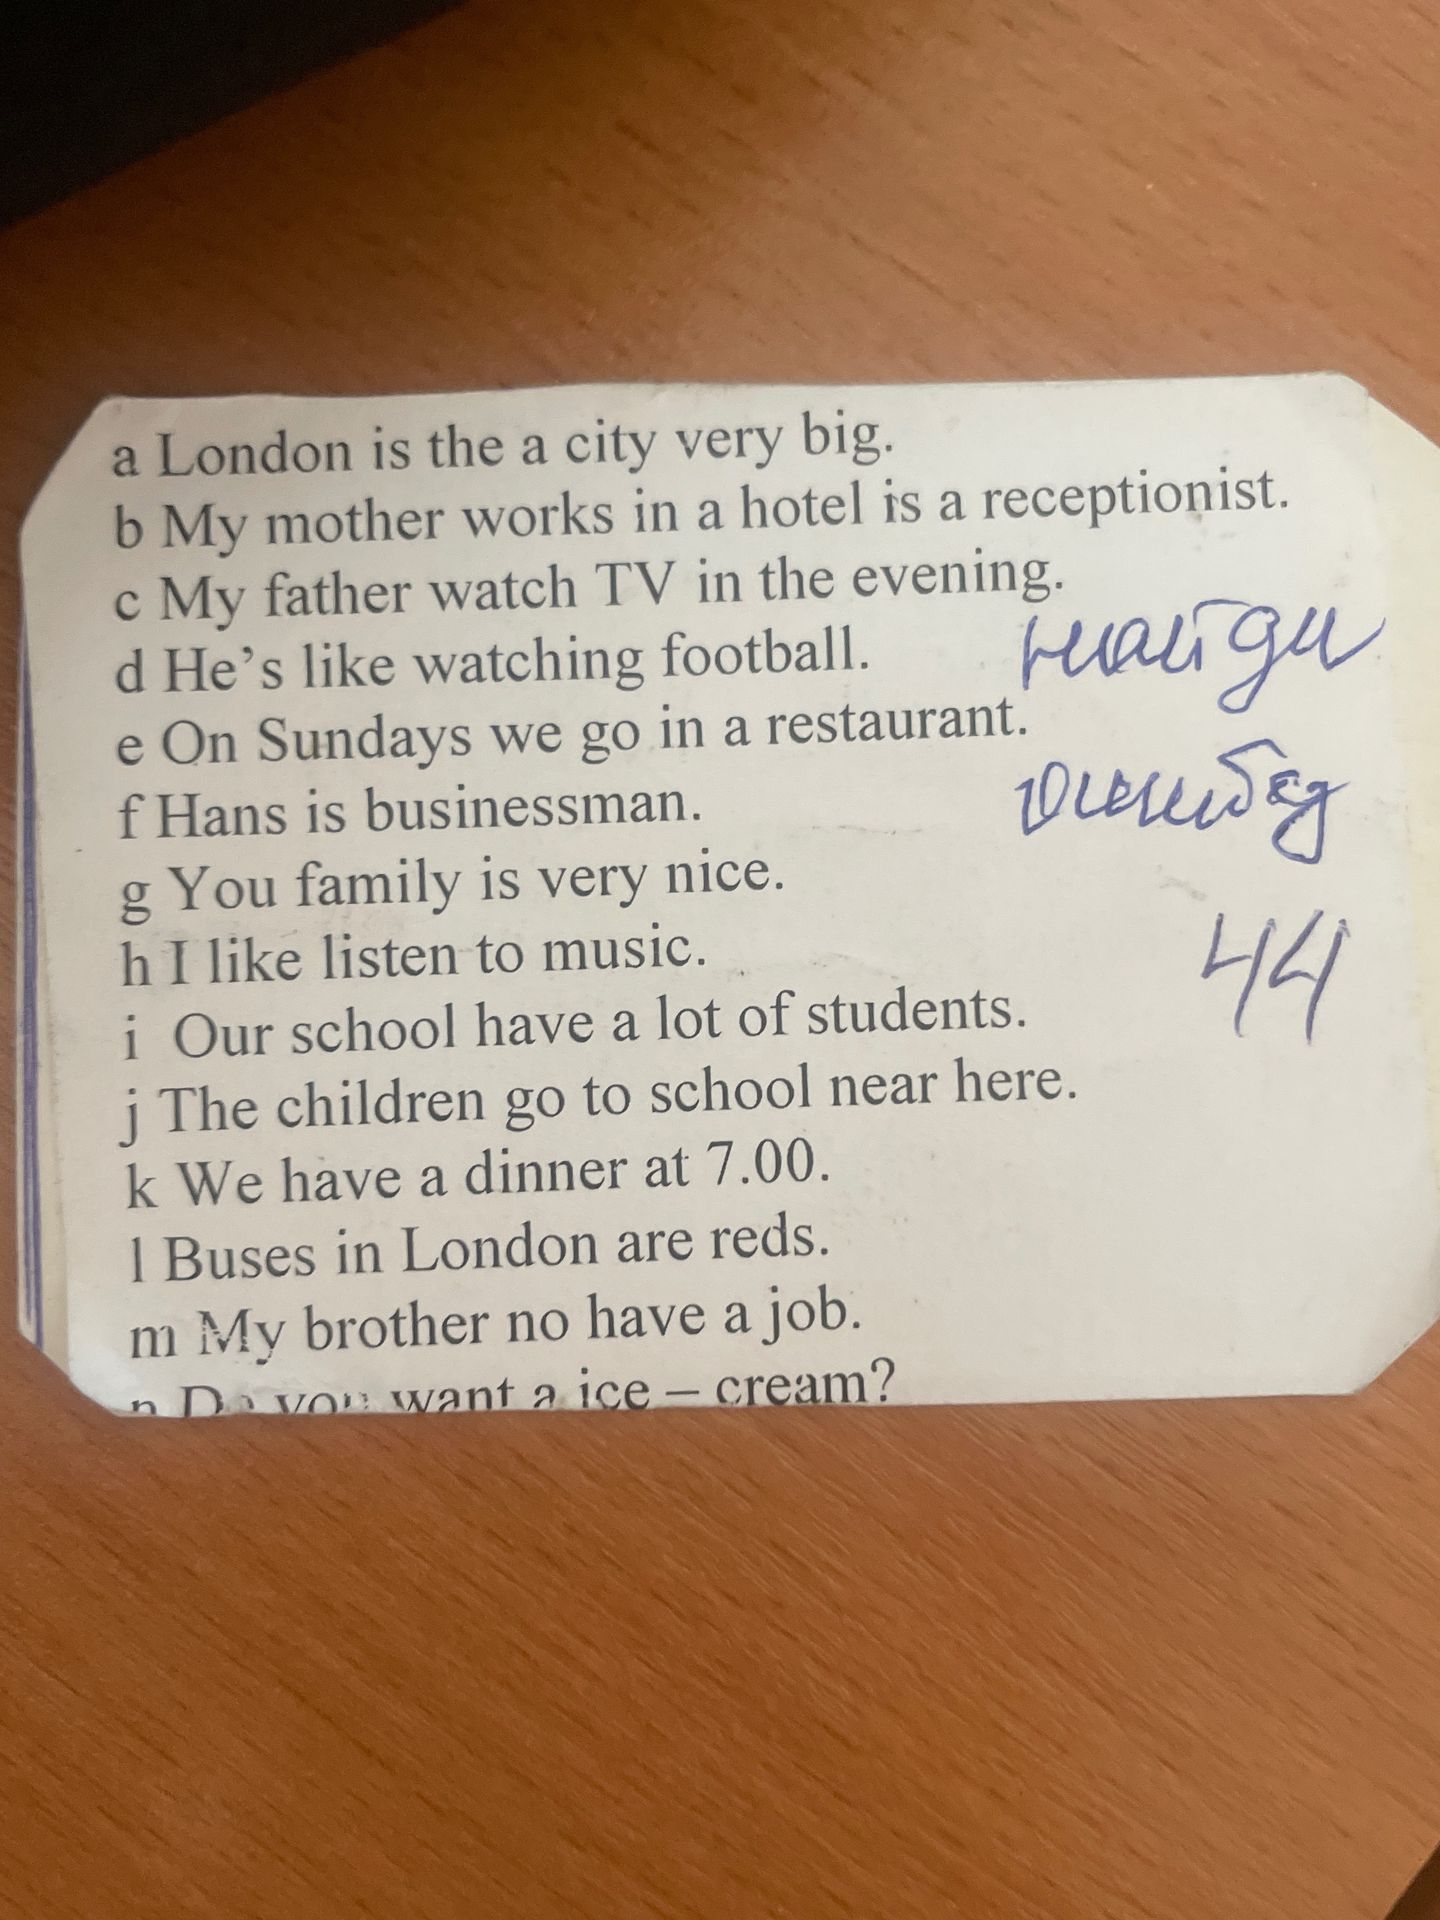 a London is the a city very big.
b My mother works in a hotel is a receptionist.
c My father watch TV in the evening.
d He's like watching football.
найди
e On Sundays we go in a restaurant.
f Hans is businessman.
ошибку
g You family is very nice.
h I like listen to music.
44
i Our school have a lot of students.
j The children go to school near here.
k We have a dinner at 7.00.
l Buses in London are reds.
m My brother no have a job.
n Do you want a ice – cream?